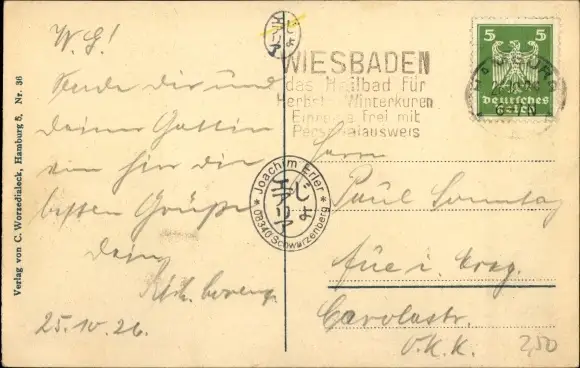 W. G!
Sende dir und
deiner Gattin
von hier die
besten Grüße
Dein
25.10.26.
Verlag von C. Worzedialeck, Hamburg 5. Nr. 36
じょ
エアリア
WIESBADEN
das Heilbad für
Herbst- Winterkuren
Einreise frei mit
Personalausweis
5 5
Deutsches
Reich
Joachim Erler
じょ
エアリア
* 08340 Schwarzenberg *
Herrn
Paul Sonntag
Aue i. Erzg.
Carolastr.
V.K.K.
2,50